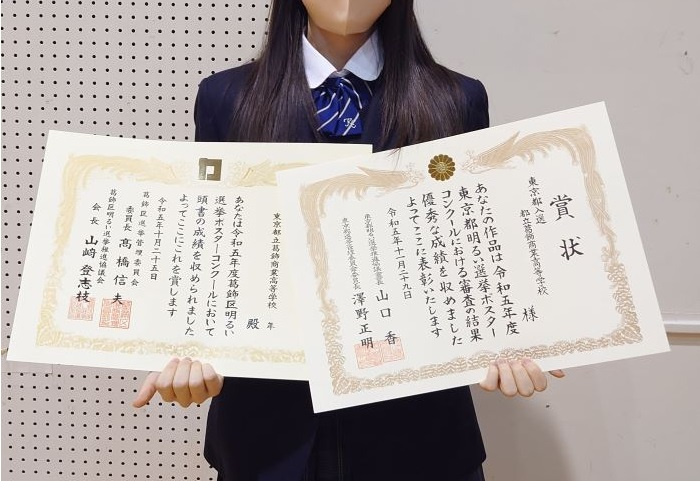 東京都立葛飾商業高等学校 年
殿
あなたは令和五年度葛飾区明るい
選挙ポスターコンクールにおいて
頭書の成績を収められました
よってここにこれを賞します
令和五年十月二十五日
葛飾区選挙管理委員会
委員長 髙橋信夫
葛飾区明るい選挙推進協議会
会長 山﨑登志枝
賞状
東京都入選
都立葛飾商業高等学校
様
あなたの作品は令和五年度
東京都明るい選挙ポスター
コンクールにおける審査の結果
優秀な成績を収めました
よってここに表彰いたします
令和五年十一月二十九日
東京都明るい選挙推進協議会会長 山口香
東京都選挙管理委員会委員長 澤野正明